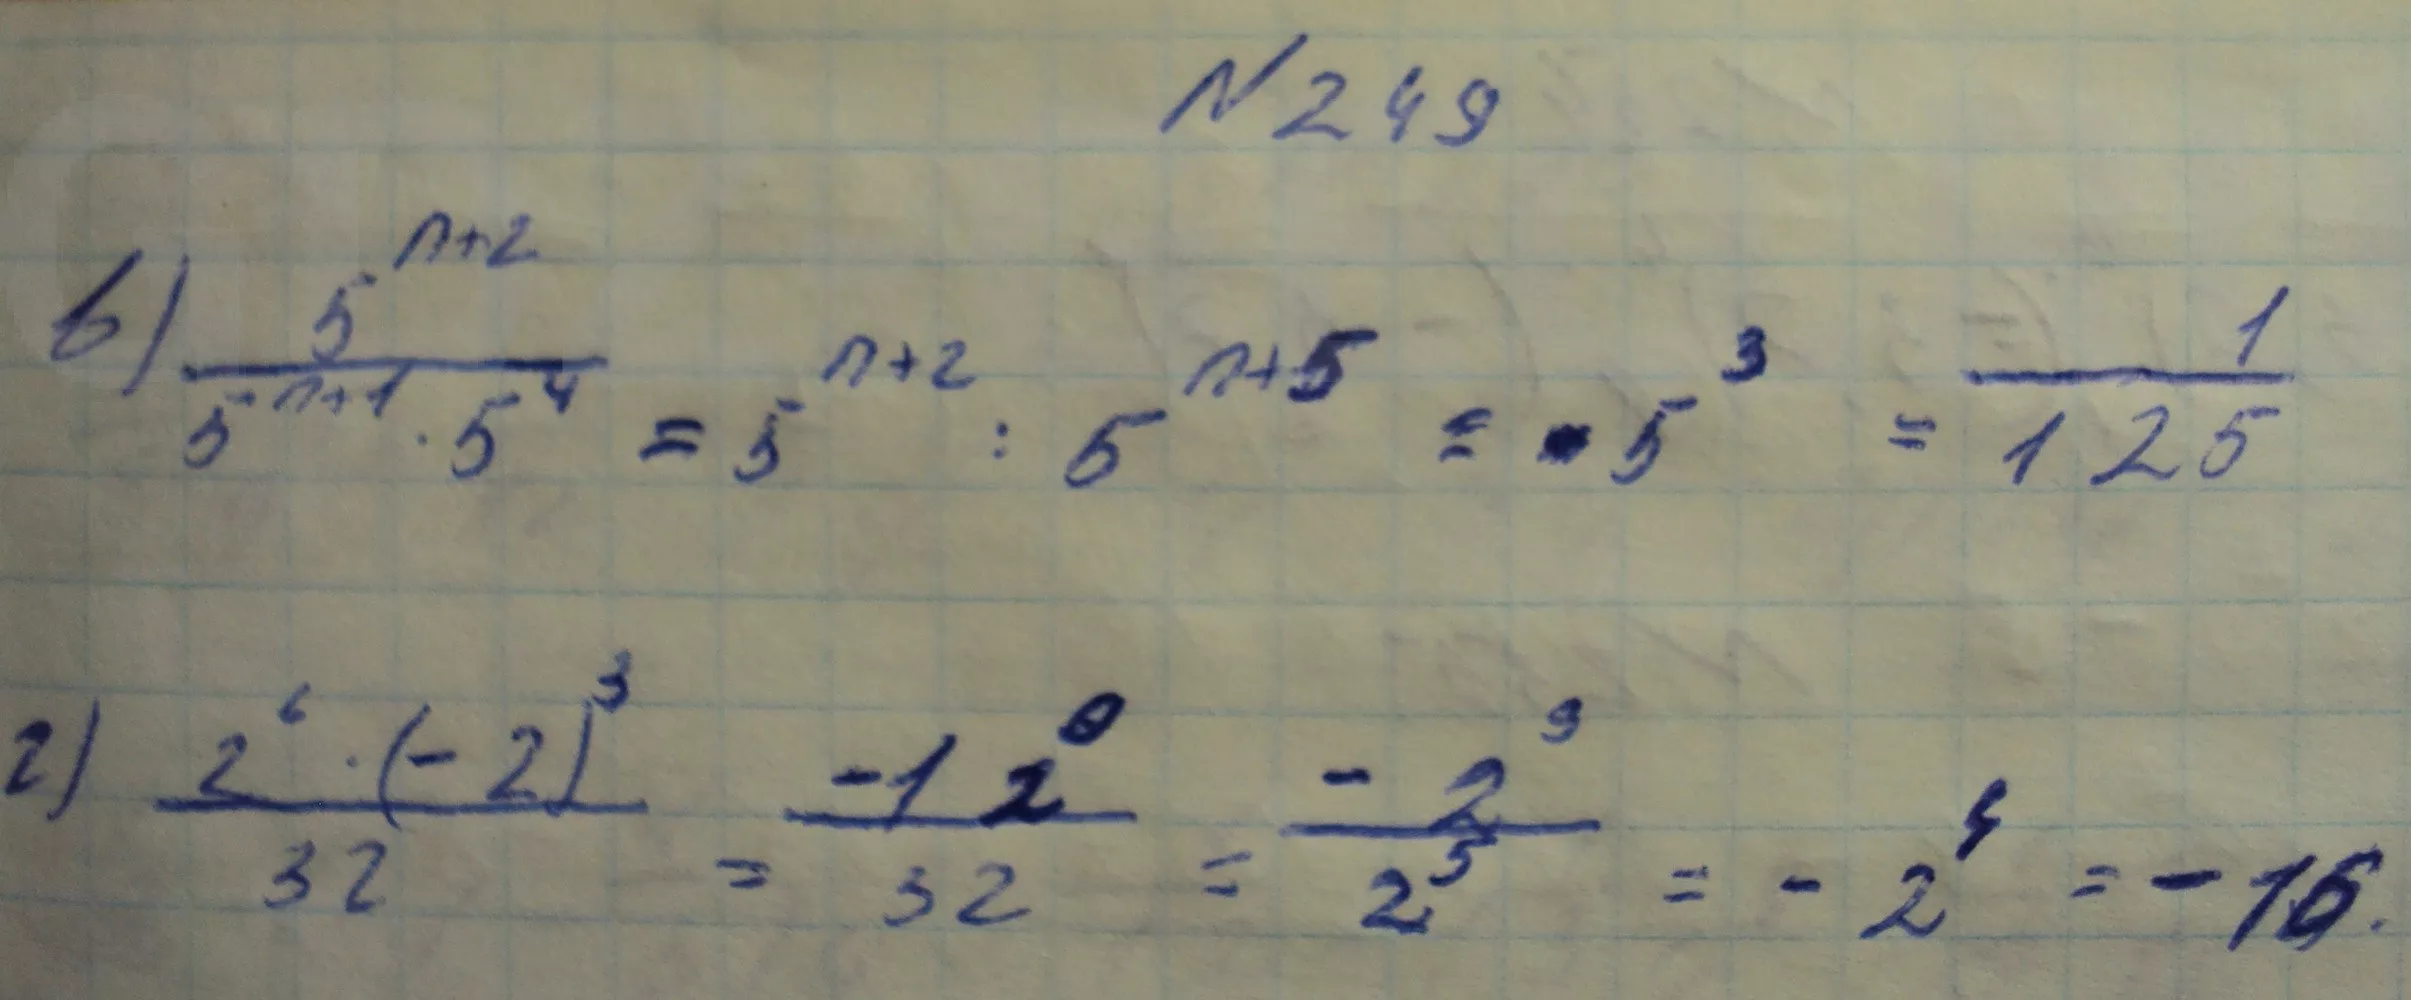 №249
в) 5^(n+2) / (5^(n+1) · 5^4) = 5^(n+2) : 5^(n+5) = 5^3 = 1/125
г) 2^6 · (-2)^3 / 32 = -1 2^9 / 32 = -2^9 / 2^5 = -2^4 = -16.